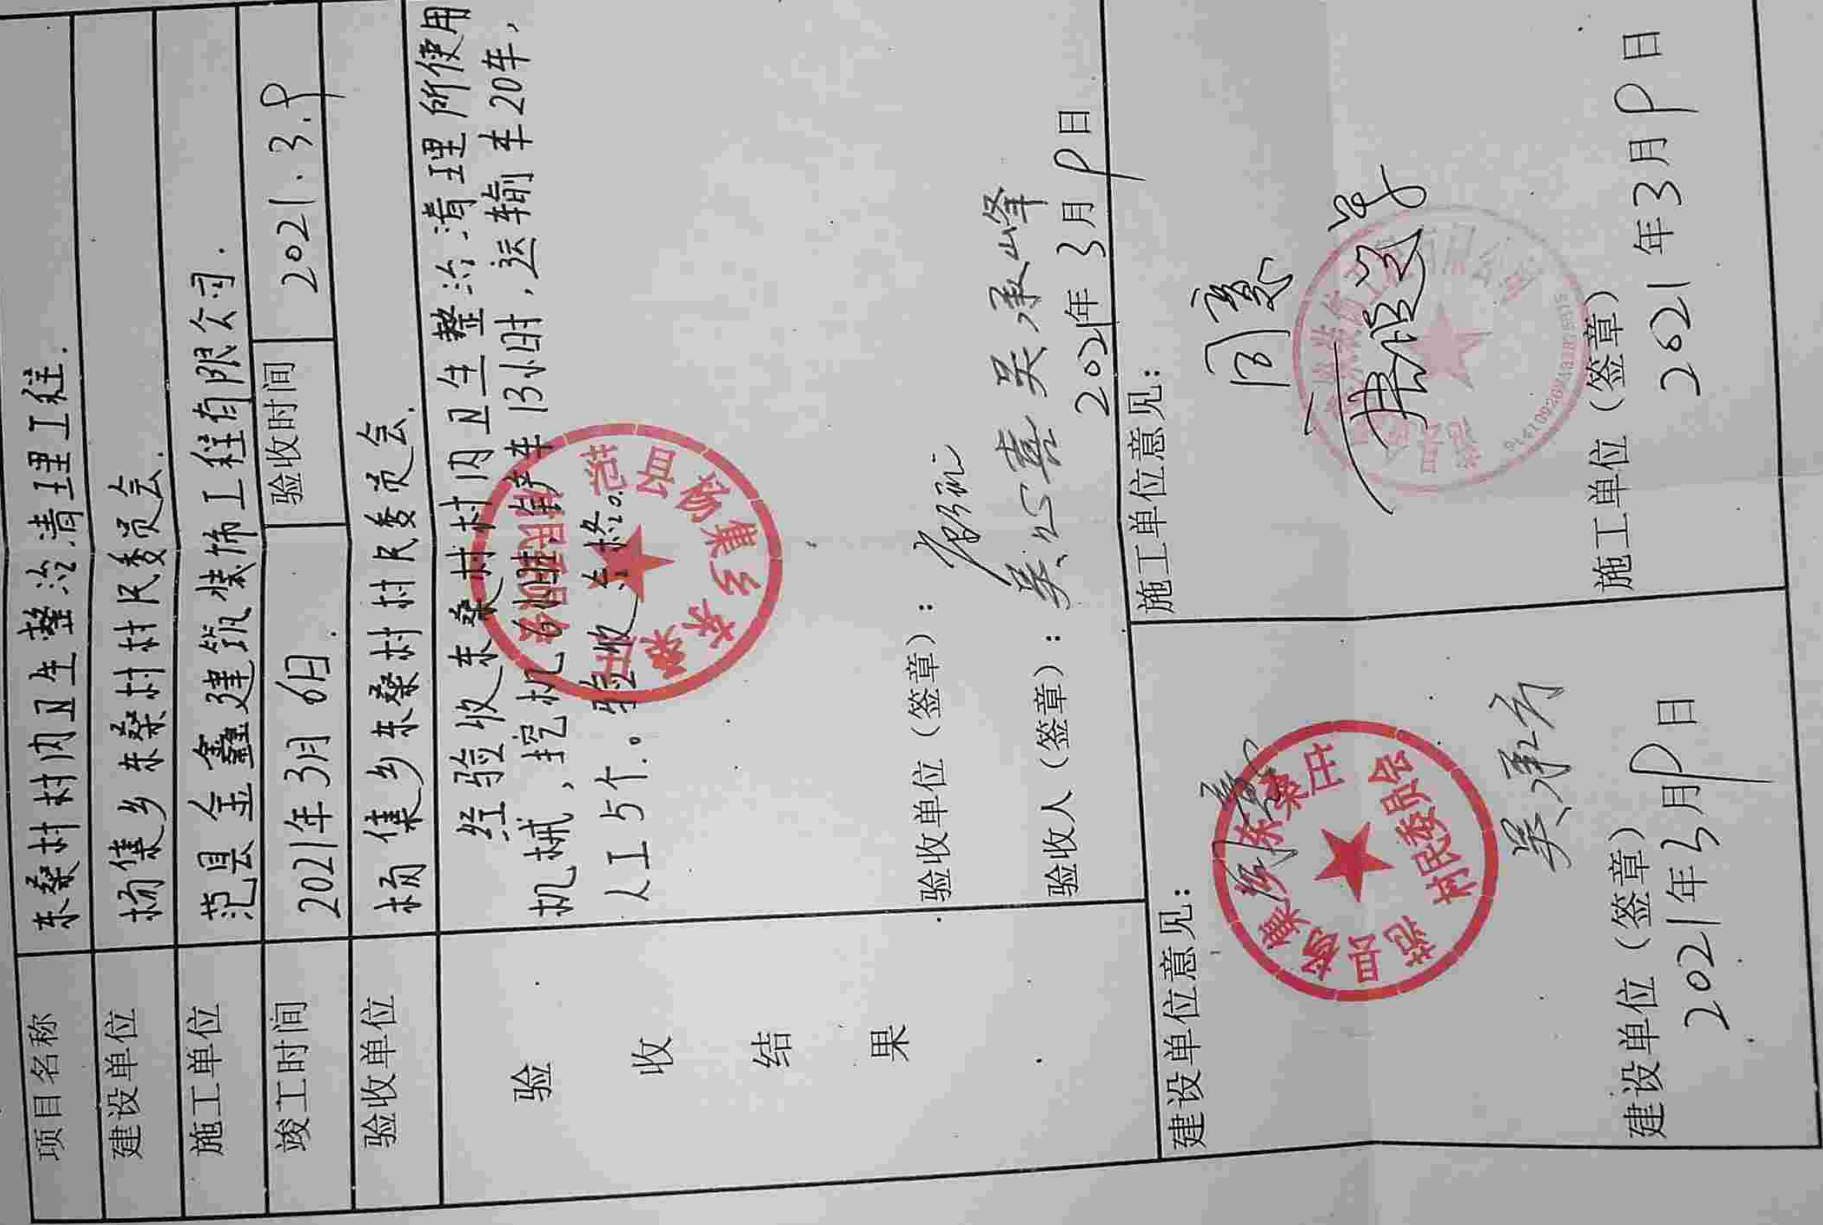 项目名称 东桑村村内卫生整治清理工程.
建设单位 杨集乡东桑村村民委员会.
施工单位 范县金鑫建筑装饰工程有限公司.
竣工时间 2021年3月6日. 验收时间 2021.3.9
验收单位 杨集乡东桑村村民委员会.
验收结果
经验收东桑村村内卫生整治清理所使用
机械,挖机6小时,铲车13小时,运输车20车,
人工5个。验收合格。
范县杨集乡东桑庄
村民委员会
验收单位（签章）：
验收人（签章）：吴心喜 吴承峰
2021年3月9日
建设单位意见：
同意
范县杨集乡东桑庄
村民委员会
吴承方
建设单位（签章）
2021年3月9日
施工单位意见：
同意
施工单位（签章）
2021年3月9日